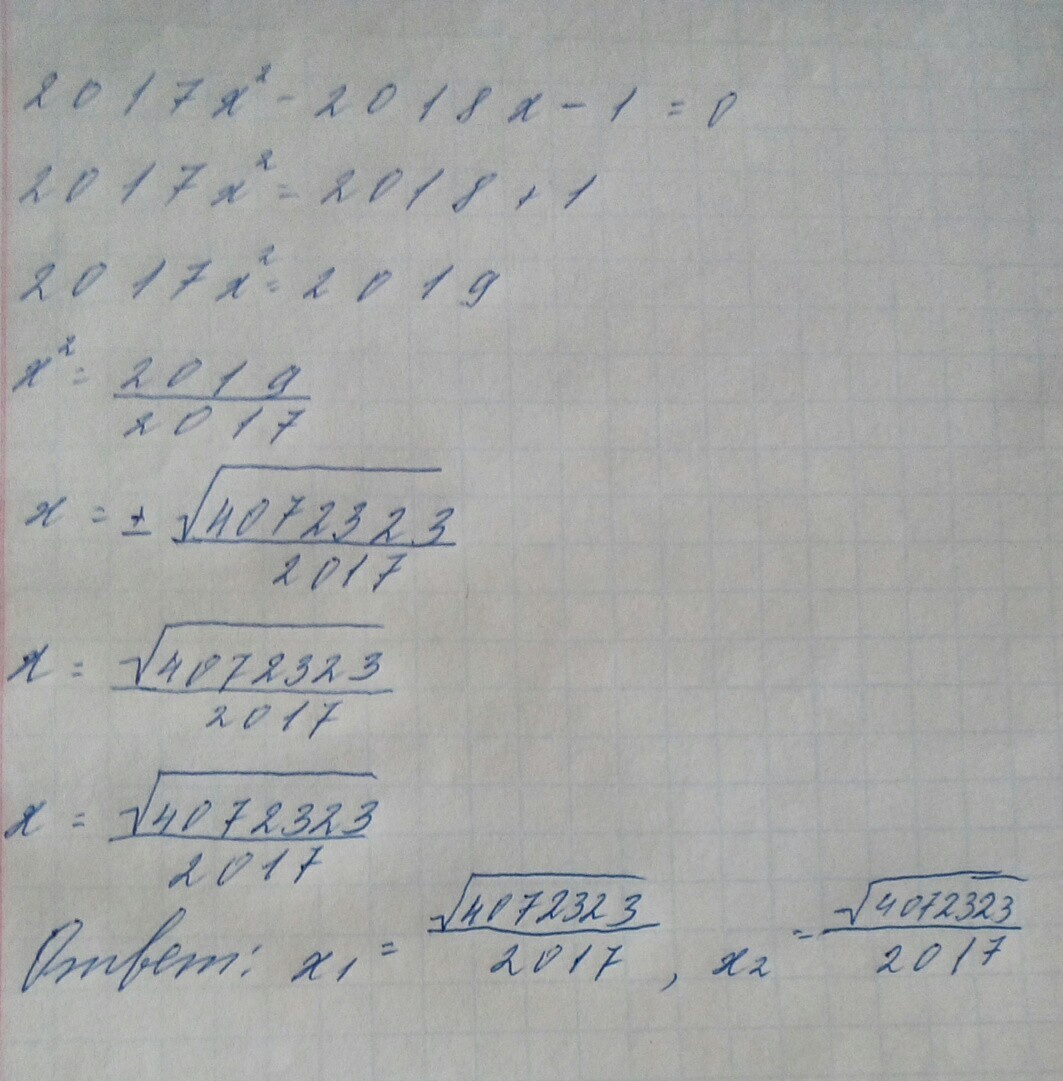 2017x² - 2018x - 1 = 0
2017x² = 2018 + 1
2017x² = 2019
x² = 2019/2017
x = ± √4072323/2017
x = √4072323/2017
x = √4072323/2017
Ответ: x₁ = √4072323/2017, x₂ = -√4072323/2017